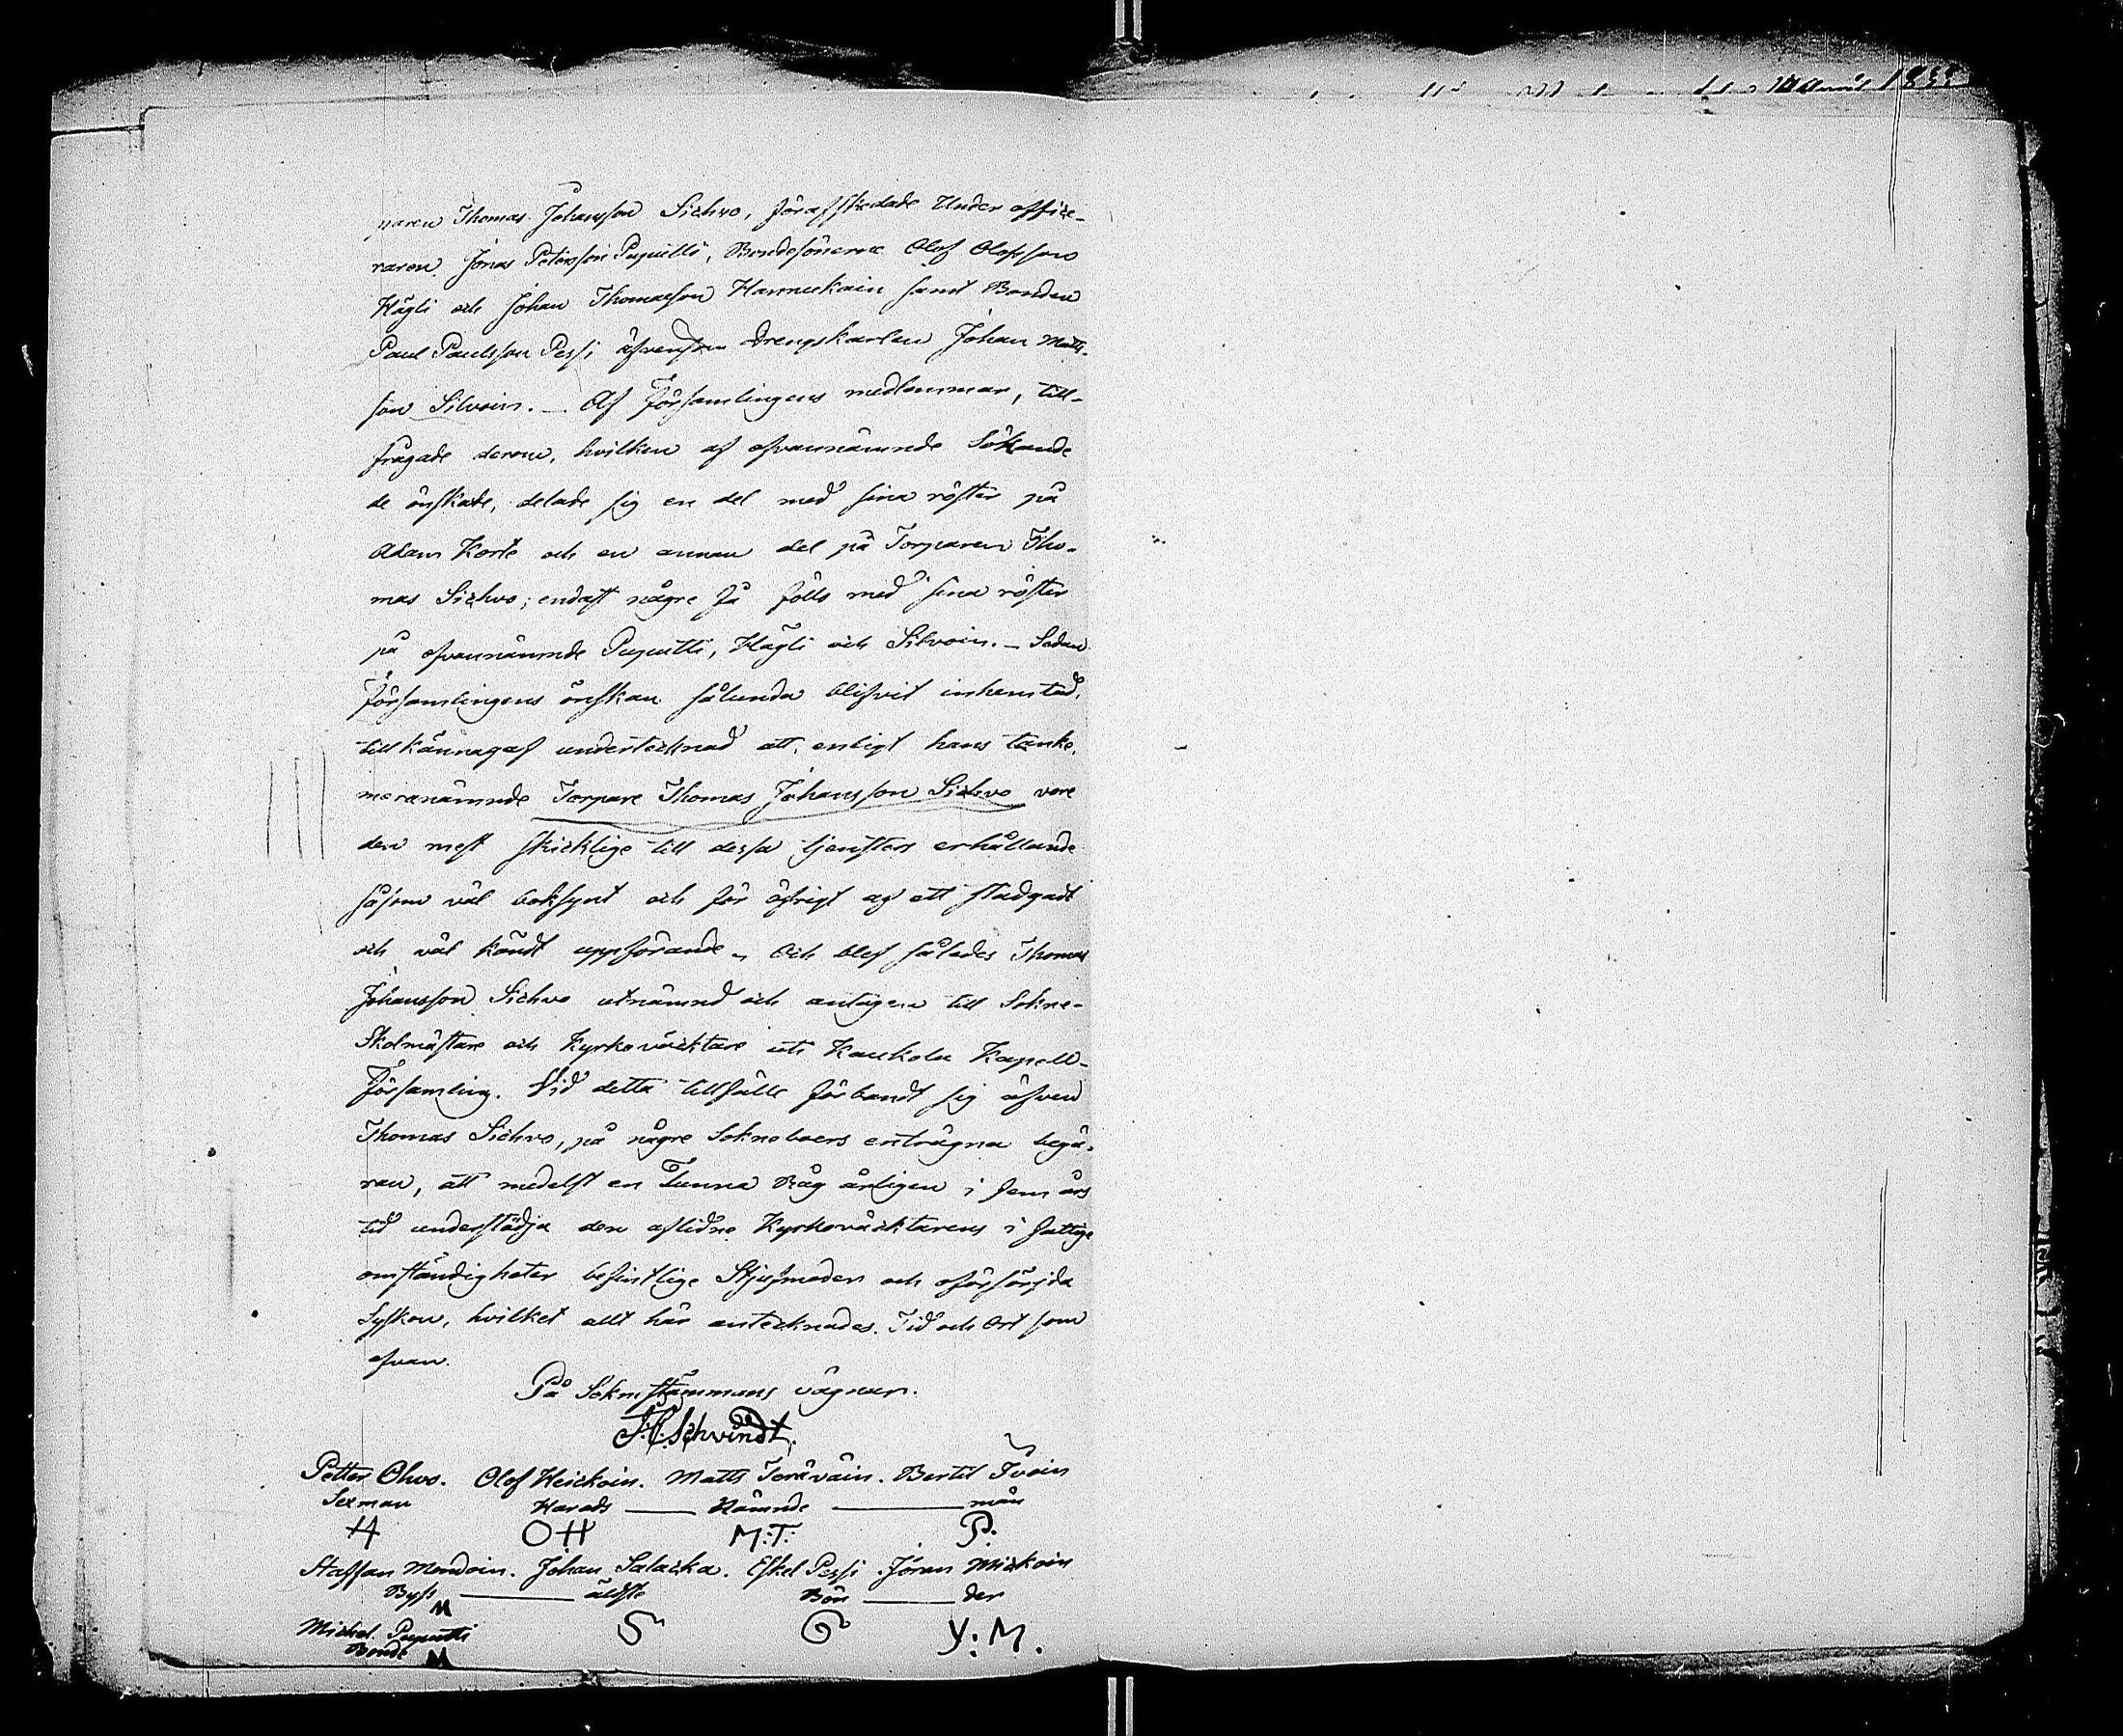 paren Thomas Johansson Sichvo, förafskedade Under office-
raren Jonas Petersson Puputti, Bondesönerne Olof Olofsson
Hägli och Johan Thomasson Hannukain samt Bonden
Paul Paulsson Pessi äfvensom Drengskarlen Johan Matts-
son Silvoin. — Af Församlingens medlemmar, till-
frågade derom, hvilken af ofvannämnde Sökande
de önskade, delade sig en del med sina röster på
Adam Korte och en annan del på Torparen Tho-
mas Sichvo; endast någre få föllo med sina röster
på ofvannämnde Puputti, Hägli och Silvoin. — Sedan
Församlingens önskan sålunda blifvit inhemtad,
tillkännagaf undertecknad att, enligt hans tanke,
meranämnde Torpare Thomas Johansson Sichvo vore
den mest skicklige till dessa tjensters erhållande
såsom väl boksynt och för öfrigt af ett stadgadt
och väl kändt uppförande. Och blef således Thomas
Johansson Sichvo utnämnd och antagen till Sokne-
Skolmästare och Kyrkoväcktare uti Kaukola Kapell-
Församling. Vid detta tillfälle förbandt sig äfven
Thomas Sichvo, på någre Sokneboers enträgna begä-
ran, att medelst en Tunna Råg årligen i fem års
tid understödja den aflidne Kyrkoväcktarens i fattige
omständigheter befintlige Stjufmoder och oförsörjda
Syskon, hvilket allt här antecknades. Tid och Ort som
ofvan.
På Soknestämmans vägnar.
Schvindt.
Petter Ohvo. Olof Heickoin. Matts Terävain. Bertil Ivoin
Sexman Harads — Nämnde — män
H OH M:T: P.
Staffan Mondoin. Johan Salacka. Eskel Pessi. Jöran Mickoin
Bys — äldste Bön — der
M S G Y:M.
Michel Puputti
Bonde M